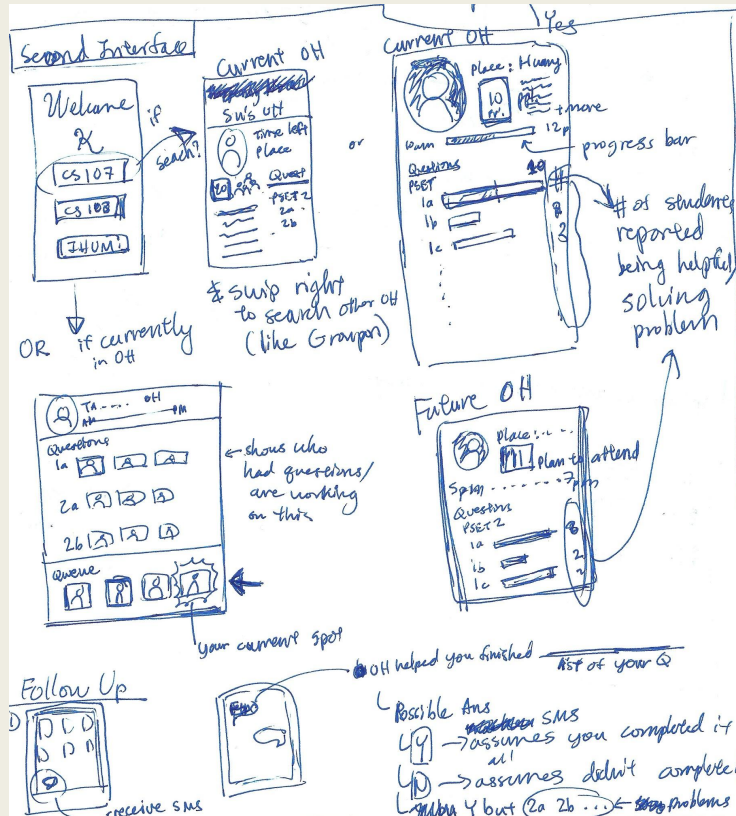 Second Interface
Welcome
K
CS 107
CS 108
IHUM
if
seach?
OR if currently
in OH
Current OH
SW's OH
Time left
Place
20
Quest
PSET 2
2a
2b
& swip right
to search other OH
(like Groupon)
or
Yes
Current OH
Place: Huang
10
ppl
+more
12p
progress bar
Questions
PSET
1a
1b
1c
10
#
8
3
# of students
reported
being helpful/
solving
problem
TA ----- OH
AM PM
Questions
1a
2a
2b
Queue
← shows who
had questions/
are working
on this
your current spot
Future OH
Place: . - . .
11 Plan to attend
5pm ------- 7pm
Questions
PSET 2
1a 8
1b 2
1c 3
Follow Up
receive SMS
OH helped you finished
list of your Q
Possible Ans
SMS
Y → assumes you completed it
all!
N → assumes didn't complete
Y but 2a 2b ... ← problems